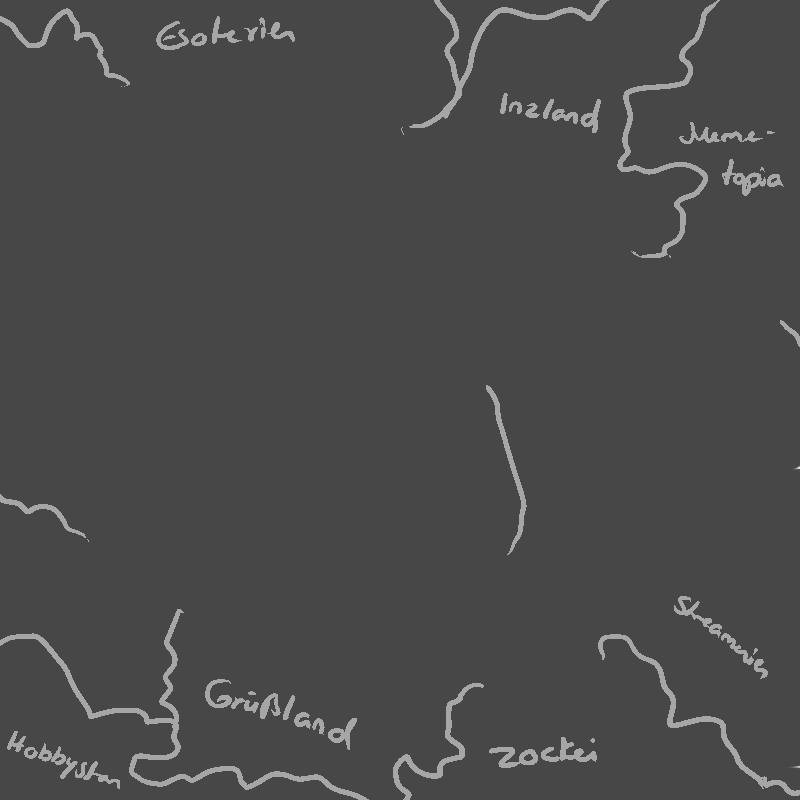 Esoterien
Inzland
Meme-
topia
Streamerien
Grüßland
Zockei
Hobbystan